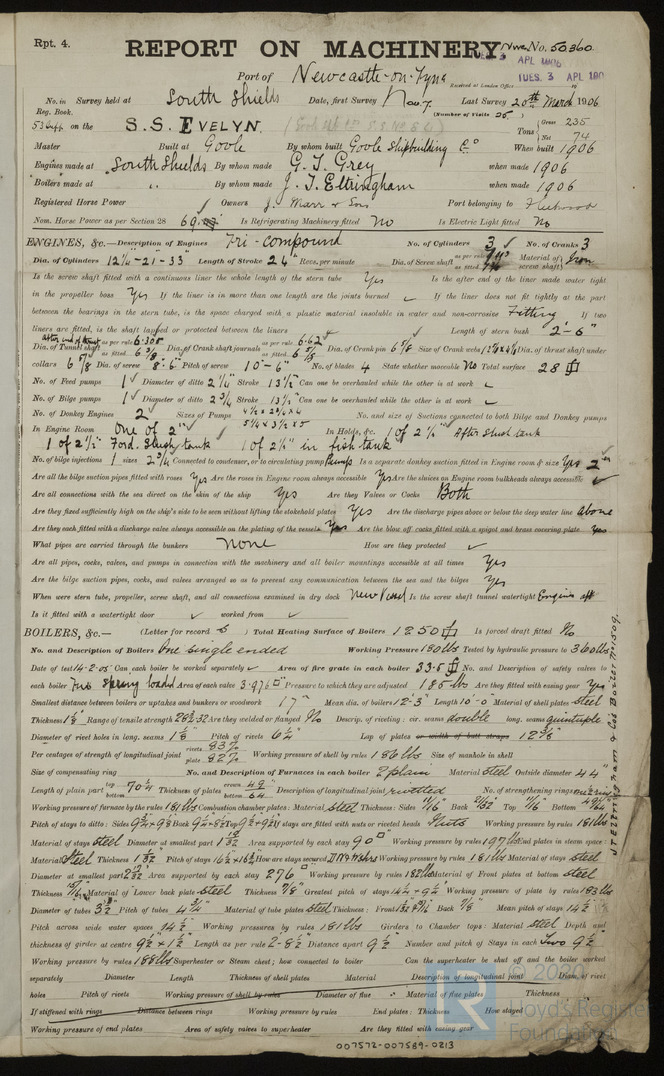 Rpt. 4.
REPORT ON MACHINERY
No. 50360
Port of Newcastle-on-Tyne
Received at London Office TUES. 3 APL 190
No. in Reg. Book. Survey held at South Shields Date, first Survey Nov 7. Last Survey 20th March 1906
(Number of Visits 25)
on the S.S. EVELYN Tons Gross 235 Net 74
Master Built at Goole By whom built Goole Shipbuilding Co When built 1906
Engines made at South Shields By whom made G. T. Grey when made 1906
Boilers made at " By whom made J. T. Eltringham when made 1906
Registered Horse Power Owners J. Marr & Son Port belonging to Fleetwood
Nom. Horse Power as per Section 28 69 Is Refrigerating Machinery fitted No Is Electric Light fitted No
ENGINES, &c.—Description of Engines Tri-compound No. of Cylinders 3 No. of Cranks 3
Dia. of Cylinders 12¼-21-33 Length of Stroke 24 Revs. per minute Dia. of Screw shaft as per rule as fitted Material of screw shaft Iron
Is the screw shaft fitted with a continuous liner the whole length of the stern tube Yes Is the after end of the liner made water tight
in the propeller boss Yes If the liner is in more than one length are the joints burned If the liner does not fit tightly at the part
between the bearings in the stern tube, is the space charged with a plastic material insoluble in water and non-corrosive Fitting If two
liners are fitted, is the shaft lapped or protected between the liners Length of stern bush 2'-6"
Dia. of Tunnel shaft as per rule 6.305 as fitted 6 3/8 Dia. of Crank shaft journals as per rule 6.62 as fitted 6 5/8 Dia. of Crank pin 6 5/8 Size of Crank webs Dia. of thrust shaft under
collars 6 5/8 Dia. of screw 8'-6" Pitch of screw 10'-6" No. of blades 4 State whether moveable No Total surface 28
No. of Feed pumps 1 Diameter of ditto 2¼ Stroke 13½ Can one be overhauled while the other is at work
No. of Bilge pumps 1 Diameter of ditto 2¾ Stroke 13½ Can one be overhauled while the other is at work
No. of Donkey Engines 2 Sizes of Pumps No. and size of Suctions connected to both Bilge and Donkey pumps
In Engine Room One of 2" In Holds, &c. 1 of 2¼" After slush tank
1 of 2½" Ford. Slush tank 1 of 2¼" in fish tank
No. of bilge injections 1 sizes 2¾ Connected to condenser, or to circulating pump Pump Is a separate donkey suction fitted in Engine room & size Yes 2"
Are all the bilge suction pipes fitted with roses Yes Are the roses in Engine room always accessible Yes Are the sluices on Engine room bulkheads always accessible
Are all connections with the sea direct on the skin of the ship Yes Are they Valves or Cocks Both
Are they fixed sufficiently high on the ship's side to be seen without lifting the stokehold plates Yes Are the discharge pipes above or below the deep water line above
Are they each fitted with a discharge valve always accessible on the plating of the vessel Yes Are the blow off cocks fitted with a spigot and brass covering plate Yes
What pipes are carried through the bunkers None How are they protected
Are all pipes, cocks, valves, and pumps in connection with the machinery and all boiler mountings accessible at all times Yes
Are the bilge suction pipes, cocks, and valves arranged so as to prevent any communication between the sea and the bilges Yes
When were stern tube, propeller, screw shaft, and all connections examined in dry dock New Vessel Is the screw shaft tunnel watertight Engines aft
Is it fitted with a watertight door worked from
BOILERS, &c.— (Letter for record S) Total Heating Surface of Boilers 1250 Is forced draft fitted No
No. and Description of Boilers One single ended Working Pressure 180 lbs Tested by hydraulic pressure to 360 lbs
Date of test 14-2-05 Can each boiler be worked separately Area of fire grate in each boiler 33.5 No. and Description of safety valves to
each boiler Two Spring loaded Area of each valve 3.976 Pressure to which they are adjusted 185 lbs Are they fitted with easing gear Yes
Smallest distance between boilers or uptakes and bunkers or woodwork 17" Mean dia. of boilers 12'-3" Length 10'-0 Material of shell plates Steel
Thickness Range of tensile strength 28½-32 Are they welded or flanged No Descrip. of riveting: cir. seams double long. seams quintuple
Diameter of rivet holes in long. seams 1 1/8 Pitch of rivets 6¼ Lap of plates or width of butt straps 12 3/8
Per centages of strength of longitudinal joint rivets 83% plate 82% Working pressure of shell by rules 186 lbs Size of manhole in shell
Size of compensating ring No. and Description of Furnaces in each boiler 2 plain Material Steel Outside diameter 44
Length of plain part top 70¼ bottom Thickness of plates crown bottom Description of longitudinal joint welded No. of strengthening rings
Working pressure of furnace by the rules 181 lbs Combustion chamber plates: Material Steel Thickness: Sides 11/16 Back 21/32 Top 11/16 Bottom
Pitch of stays to ditto: Sides Back Top If stays are fitted with nuts or riveted heads Nuts Working pressure by rules 181 lbs
Material of stays Steel Diameter at smallest part Area supported by each stay 90 Working pressure by rules 197 lbs End plates in steam space:
Material Steel Thickness Pitch of stays 16½ x 16½ How are stays secured Working pressure by rules 181 lbs Material of stays Steel
Diameter at smallest part Area supported by each stay 276 Working pressure by rules 182 lbs Material of Front plates at bottom Steel
Thickness 15/16 Material of Lower back plate Steel Thickness 7/8 Greatest pitch of stays Working pressure of plate by rules 183 lbs
Diameter of tubes 3½ Pitch of tubes 4¾ Material of tube plates Steel Thickness: Front Back 7/8 Mean pitch of stays 14½
Pitch across wide water spaces 14½ Working pressures by rules 181 lbs Girders to Chamber tops: Material Steel Depth and
thickness of girder at centre 9½ x 1½ Length as per rule 2-8½ Distance apart 9½ Number and pitch of Stays in each Two 9½
Working pressure by rules 188 lbs Superheater or Steam chest; how connected to boiler Can the superheater be shut off and the boiler worked
separately Diameter Length Thickness of shell plates Material Description of longitudinal joint Diam. of rivet
holes Pitch of rivets Working pressure of shell by rules Diameter of flue Material of flue plates Thickness
If stiffened with rings Distance between rings Working pressure by rules End plates: Thickness How stayed
Working pressure of end plates Area of safety valves to superheater Are they fitted with easing gear
J T Eltringham & Co's Boiler No 1509.
007572-007589-0213
LR
Lloyd's Register
Foundation